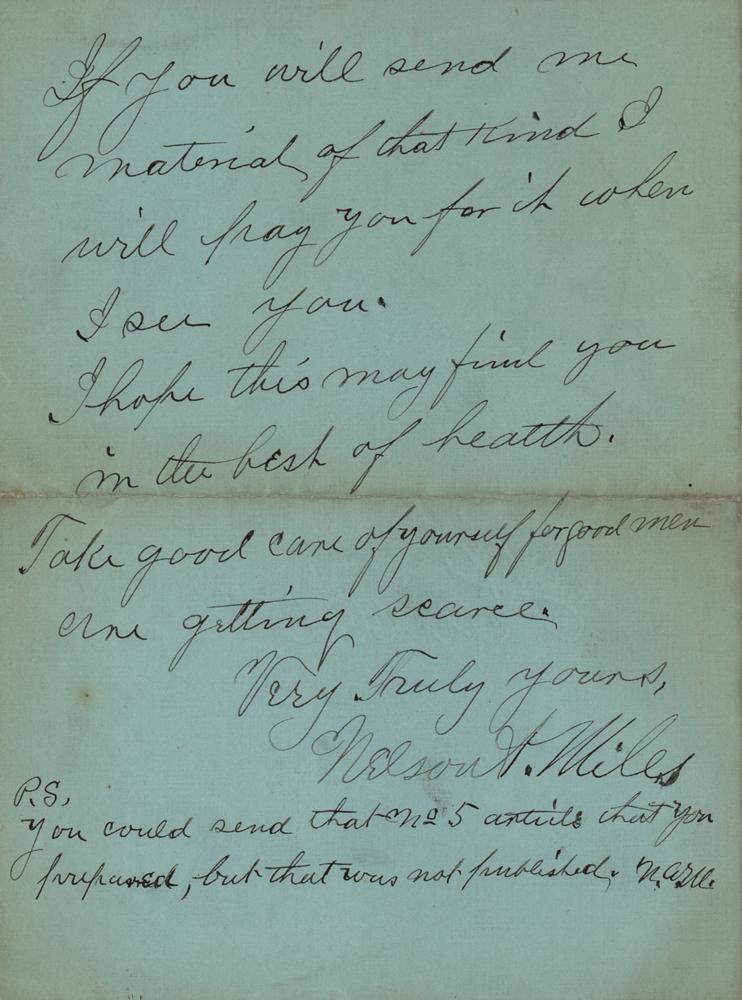 If you will send me
material of that kind I
will pay you for it when
I see you.
I hope this may find you
in the best of health.
Take good care of yourself for good men
are getting scarce.
Very Truly yours,
Nelson A. Miles
P.S.
You could send that No 5 article that you
prepared, but that was not published. N.A.M.